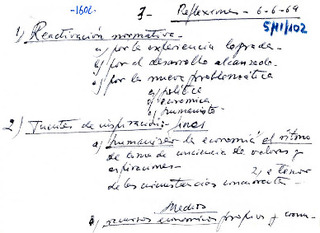 -1602- 7- Reflexiones - 6-6-69
5/II/102
1) Reactivación normativa -
a) por la experiencia lograda -
b) por el desarrollo alcanzado.
c) por la nueva problemática
a) política
b) económica
c) humanista -
2) Fuentes de inspiración: fines
a) humanizar la economía el ritmo
de toma de conciencia de valores y
aspiraciones - 2) a tenor
de las circunstancias concurrentes -
Medios
b) recursos económicos propios y